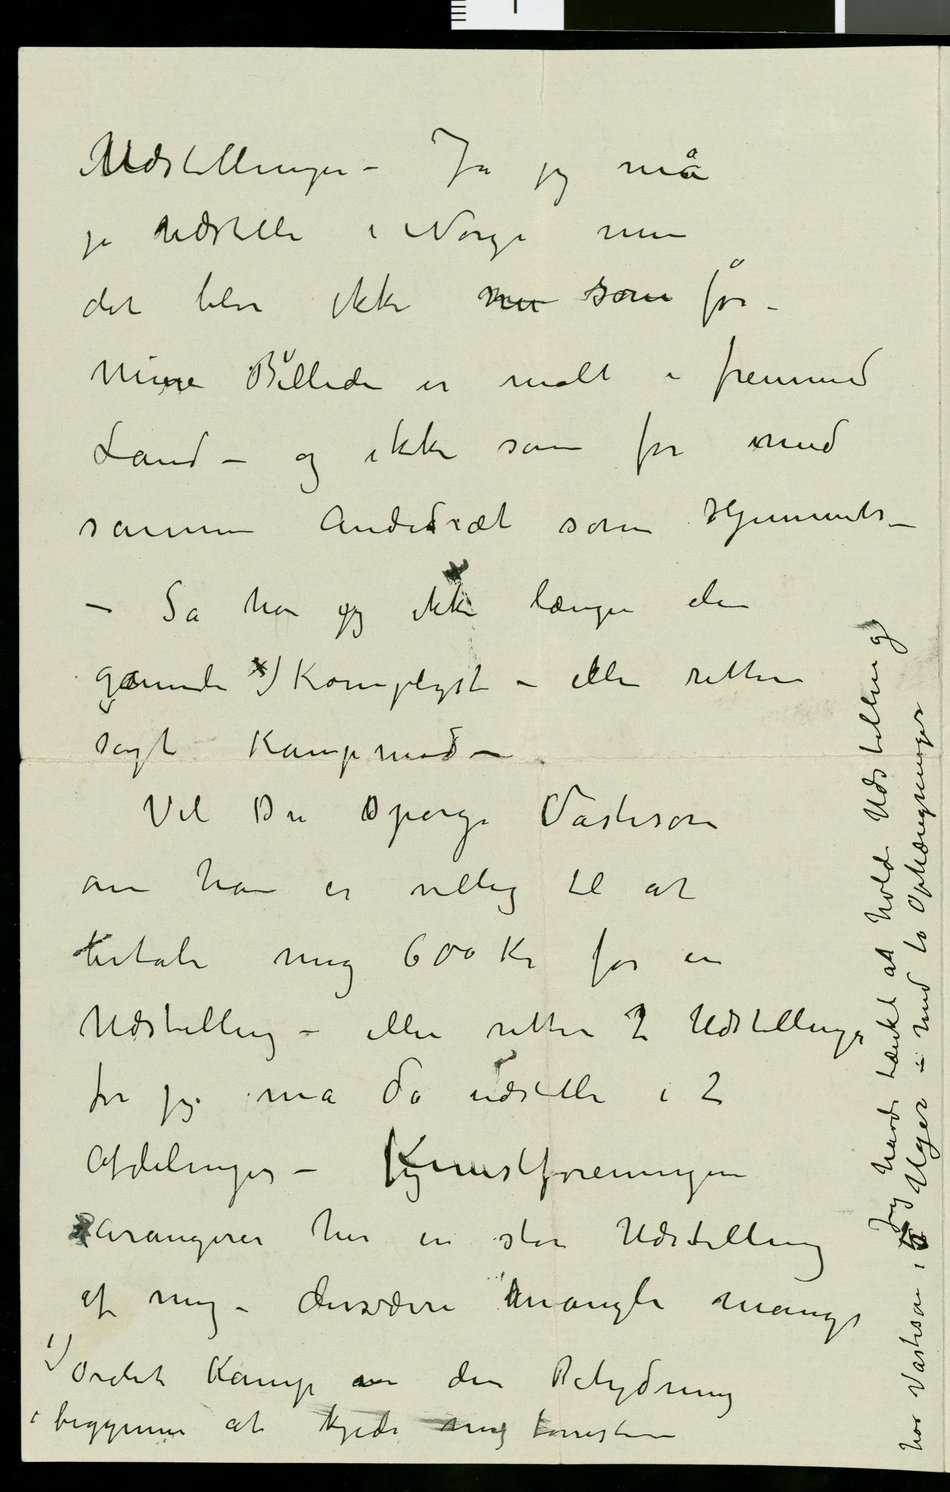 Udstillinger – Ja jeg må
jo udstille i Norge men
det blir ikke som før –
Mine Billeder er malt i fremmed
Land – og ikke som før med
samme Andedræt som Hjemmets –
– Så har jeg ikke længer den
gamle x) Kamplyst – eller rettere
sagt Kampmod –
Vil Du spørge Vastesson
om han er villig til at
betale mig 600 Kr for en
Udstilling – eller rettere 2 Udstillinger
for jeg må da udstille i 2
Afdelinger – Kunstforeningen
arangerer her en stor Udstilling
af mig – desværre mangler mange
1) Ordet Kamp den Betydning
i begynner at kjede mig
Jeg havde tænkt at holde Udstilling
hos Vastesson i Uger – med to Ophængninger